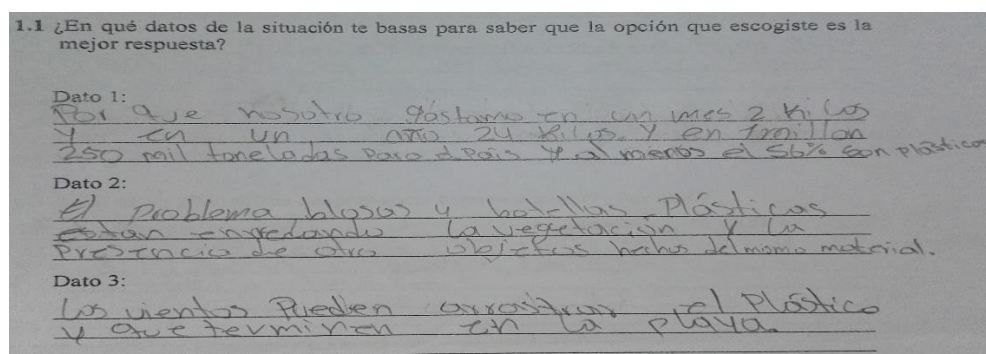 1.1 ¿En qué datos de la situación te basas para saber que la opción que escogiste es la
mejor respuesta?
Dato 1:
Por que nosotro gastamo en un mes 2 kilos
y en un año 24 kilos. Y en 1 millon
250 mil toneladas para el pais y al menos el 56% son plástico
Dato 2:
El problema blosas y botellas Plásticas
están enredando la vegetación y la
Presencia de otro objetos hechos del momo material.
Dato 3:
Los vientos Pueden arrastrar el Plástico
y que terminen en la playa.